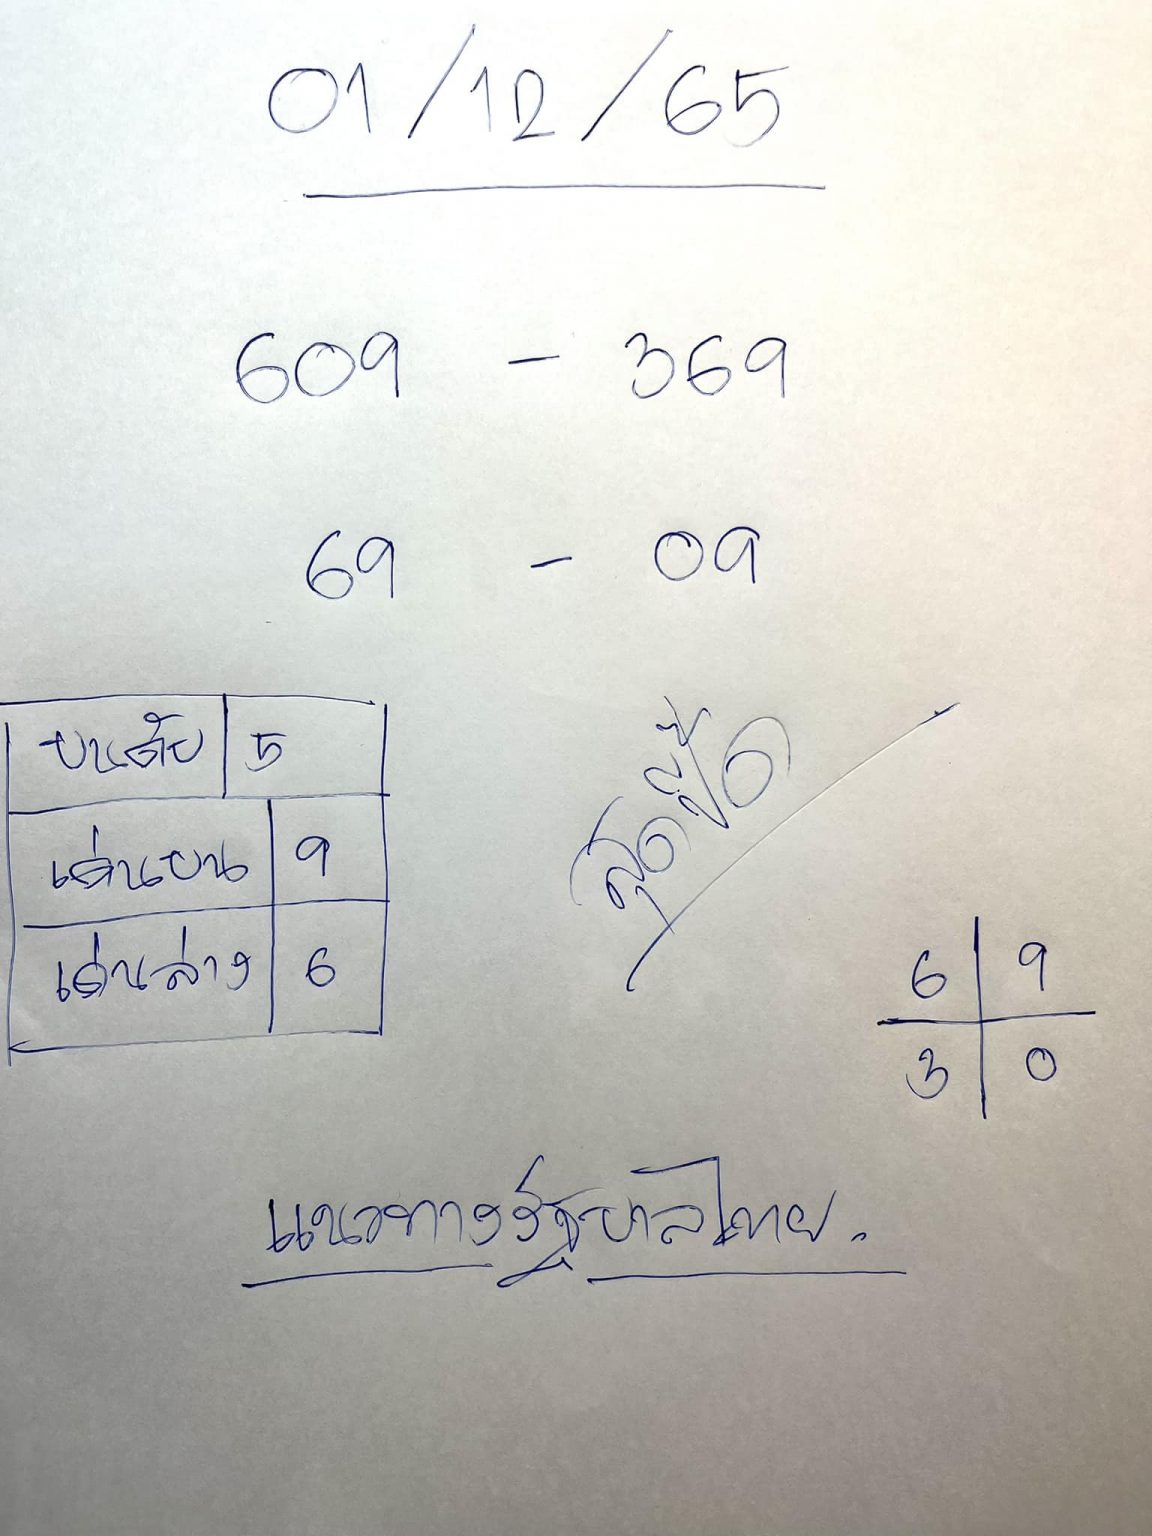 01/12/65
609 - 369
69 - 09
บนดับ 5
เด่นบน 9
เด่นล่าง 6
สุดปี๊ด
6 9
3 0
แนวทางรัฐบาลไทย.